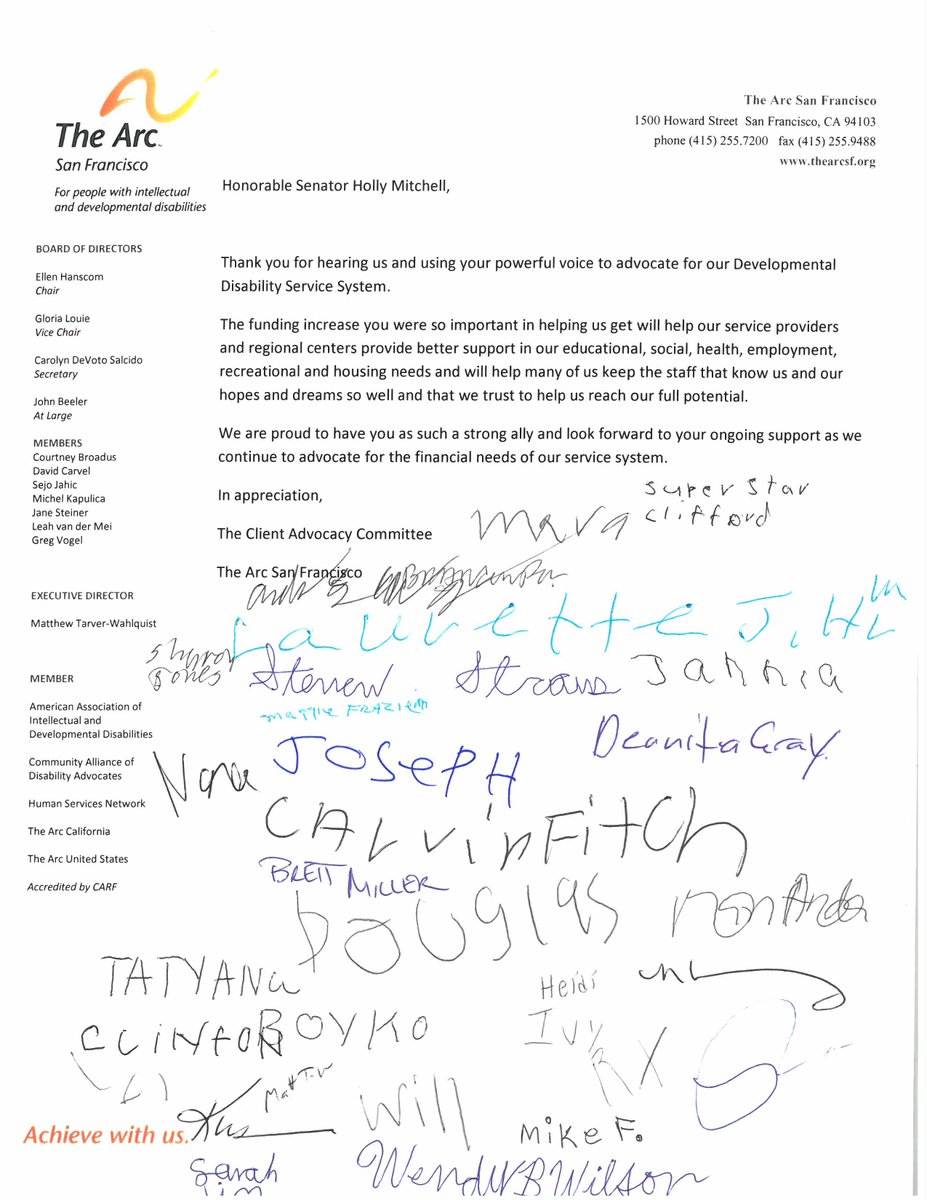 The Arc
San Francisco
For people with intellectual
and developmental disabilities
The Arc San Francisco
1500 Howard Street San Francisco, CA 94103
phone (415) 255.7200 fax (415) 255.9488
www.thearcsf.org
BOARD OF DIRECTORS
Ellen Hanscom
Chair
Gloria Louie
Vice Chair
Carolyn DeVoto Salcido
Secretary
John Beeler
At Large
MEMBERS
Courtney Broadus
David Carvel
Sejo Jahic
Michel Kapulica
Jane Steiner
Leah van der Mei
Greg Vogel
EXECUTIVE DIRECTOR
Matthew Tarver-Wahlquist
MEMBER
American Association of
Intellectual and
Developmental Disabilities
Community Alliance of
Disability Advocates
Human Services Network
The Arc California
The Arc United States
Accredited by CARF
Honorable Senator Holly Mitchell,
Thank you for hearing us and using your powerful voice to advocate for our Developmental
Disability Service System.
The funding increase you were so important in helping us get will help our service providers
and regional centers provide better support in our educational, social, health, employment,
recreational and housing needs and will help many of us keep the staff that know us and our
hopes and dreams so well and that we trust to help us reach our full potential.
We are proud to have you as such a strong ally and look forward to your ongoing support as we
continue to advocate for the financial needs of our service system.
In appreciation,
super star
clifford
The Client Advocacy Committee
The Arc San Francisco
Laurette J.
Bones
Steven Straus
Jannia
MATTIE FRAZIER
Deanita Gray
Nora
JOSEPH
CALvin FitCh
BRETT MILLER
Douglas
TATYANa
Heidi
Ivy
CLiNtON BOYKO
RX
Matt T-W
will
Mike F.
Achieve with us.
Sarah
Wendy B Wilson